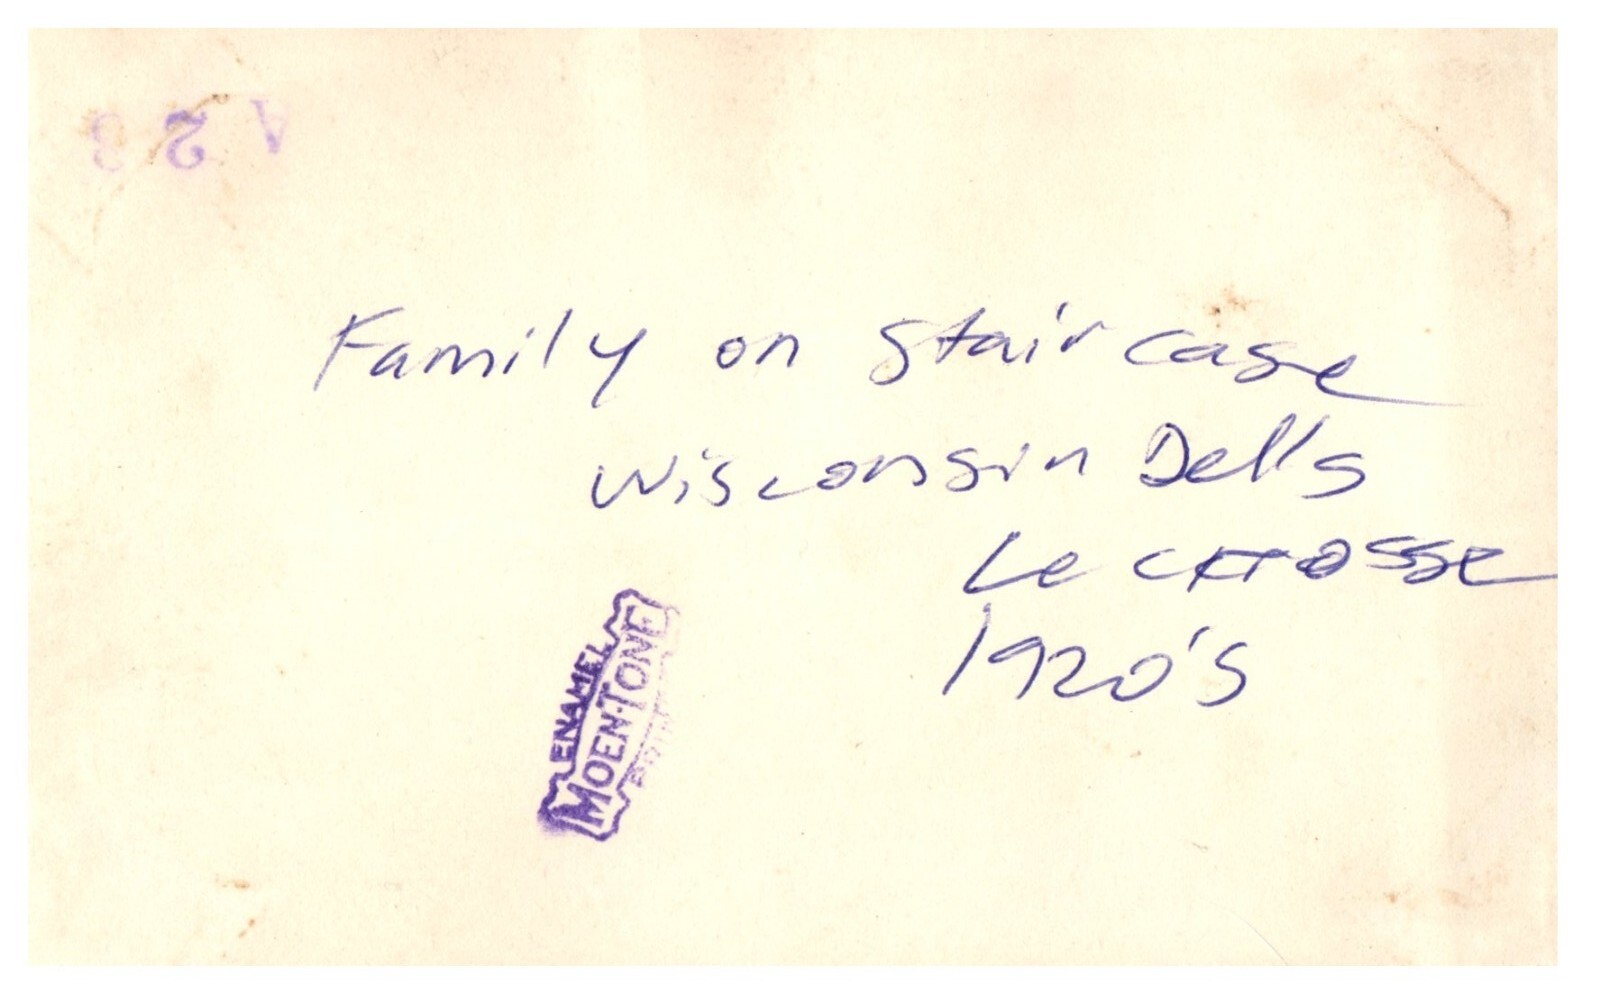 A 2 3
Family on Staircase
Wisconsin Dells
Le crosse
1920's
ENAMEL
MOEN-TONE
PRINT